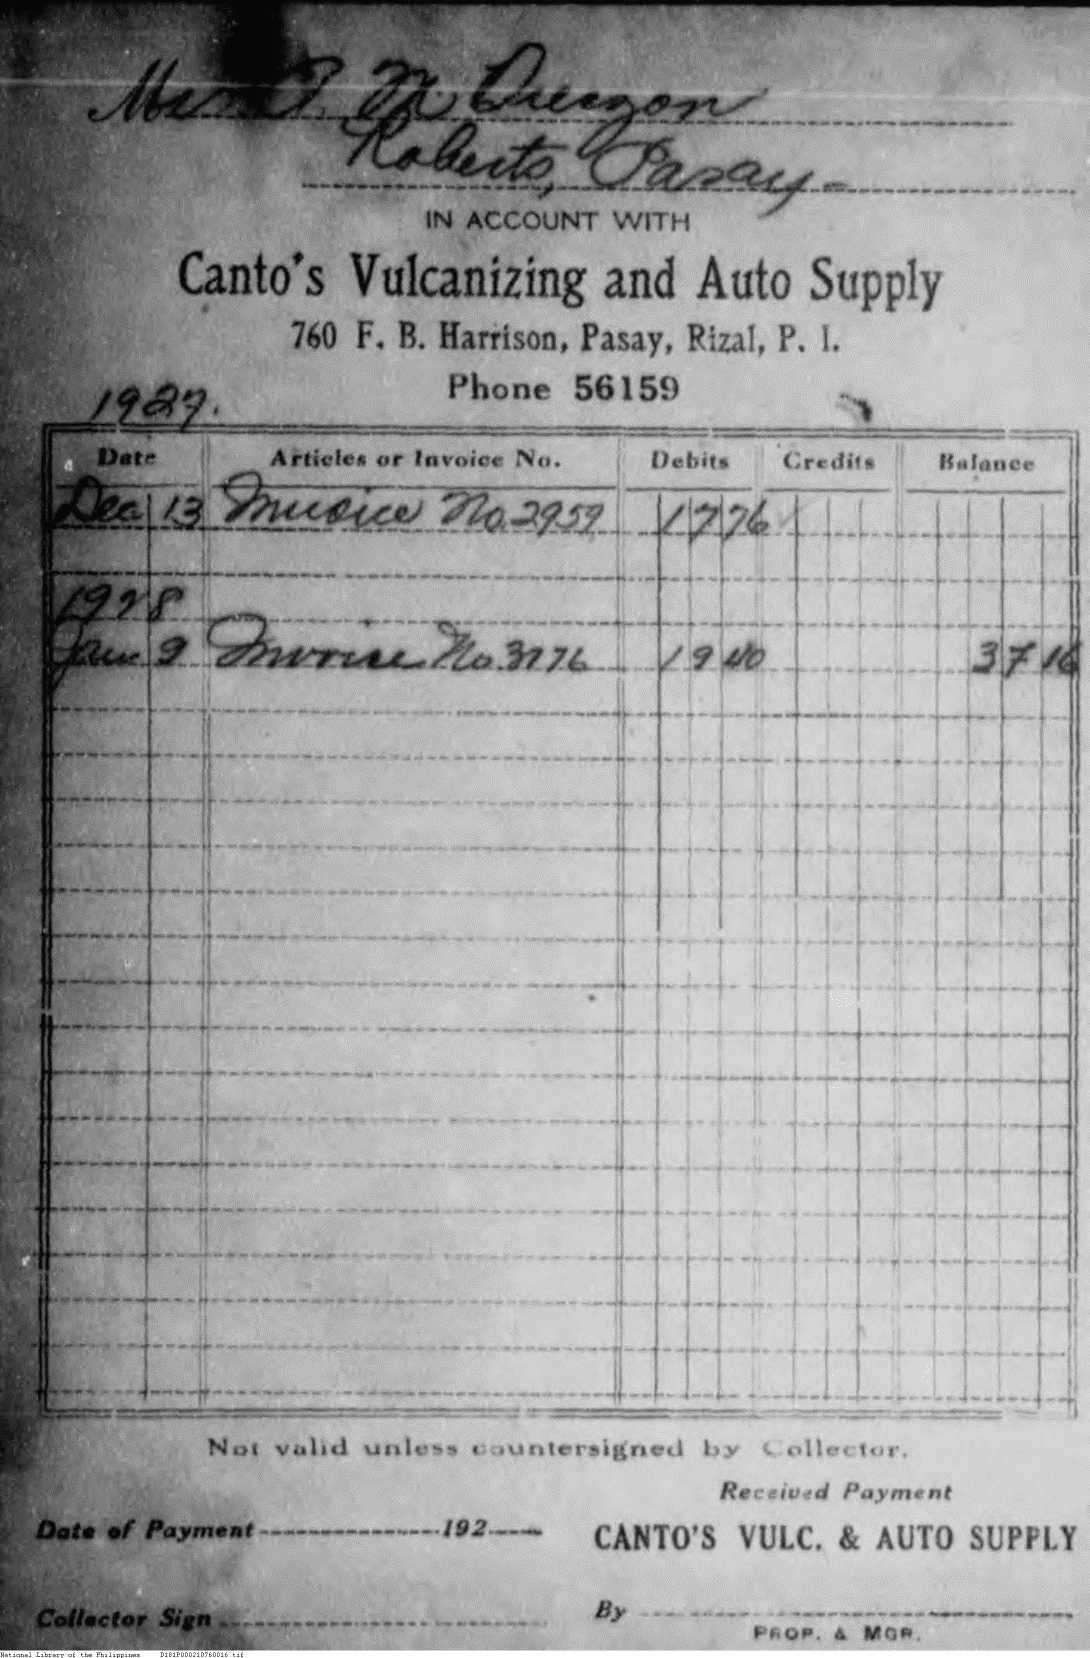 Mrs. A. M. Quezon
Roberts, Pasay-
IN ACCOUNT WITH
Canto's Vulcanizing and Auto Supply
760 F. B. Harrison, Pasay, Rizal, P. I.
Phone 56159
1927.
Date Articles or Invoice No. Debits Credits Balance
Dec 13 Invoice No. 2959 17 76
1928
Jan 9 Invoice No. 3176 19 40 37 16
Not valid unless countersigned by Collector.
Received Payment
Date of Payment 192
CANTO'S VULC. & AUTO SUPPLY
Collector Sign
By
PROP. & MGR.
National Library of the Philippines D181P000210760016.tif